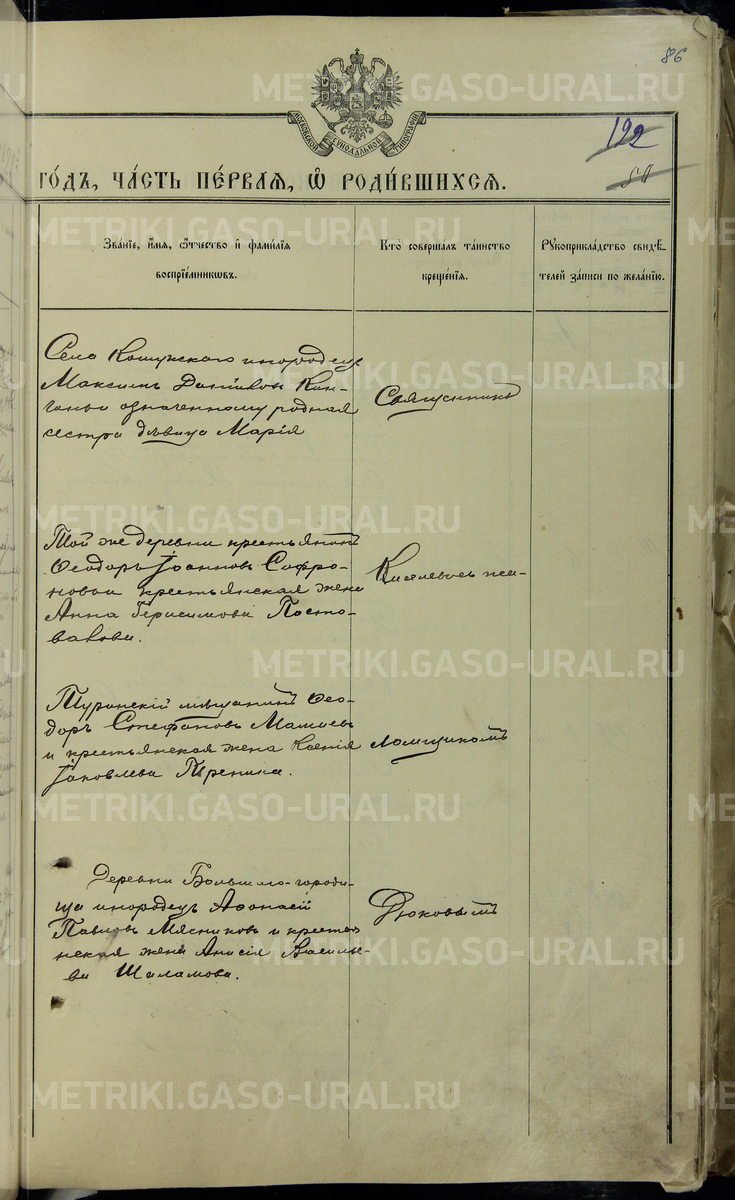 86
МОСКОВСКОЙ СѴНОДАЛЬНОЙ ТИПОГРАФІИ
122
50
го́дъ, ча́сть пе́рваѧ, ѡ҆ роди́вшихсѧ.
Зва́нїе, и҆́мѧ, ѻ҆́тчество и҆ фами́лїѧ
воспрїе́мникѡвъ.
Кто̀ соверша́лъ та́инство
креще́нїѧ.
Рꙋкоприкла́дство свидѣ́-
телей за́писи по жела́нїю.
Села Кошукскаго инородецъ
Максимъ Даниловъ
означенному родная
сестра дѣвица Марія
Священникъ
Той же деревни крестьянинъ
Ѳеодоръ Іоанновъ Софро-
новъ и крестьянская жена
Анна Герасимова Посто-
валова.
Киселевъ съ пса-
Туринскій мѣщанинъ Ѳео-
доръ Стефановъ
и крестьянская жена Ксенія
Іаковлева
ломщикомъ
Деревни Больше-городи-
ща инородецъ Аѳонасій
Павловъ Мясниковъ и крестья
нская жена Анисія Василье-
ва Шаламова.
Дюковымъ
METRIKI.GASO-URAL.RU